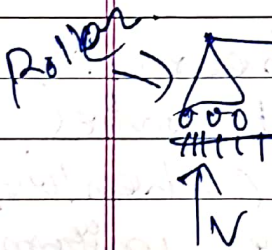 Roller
N